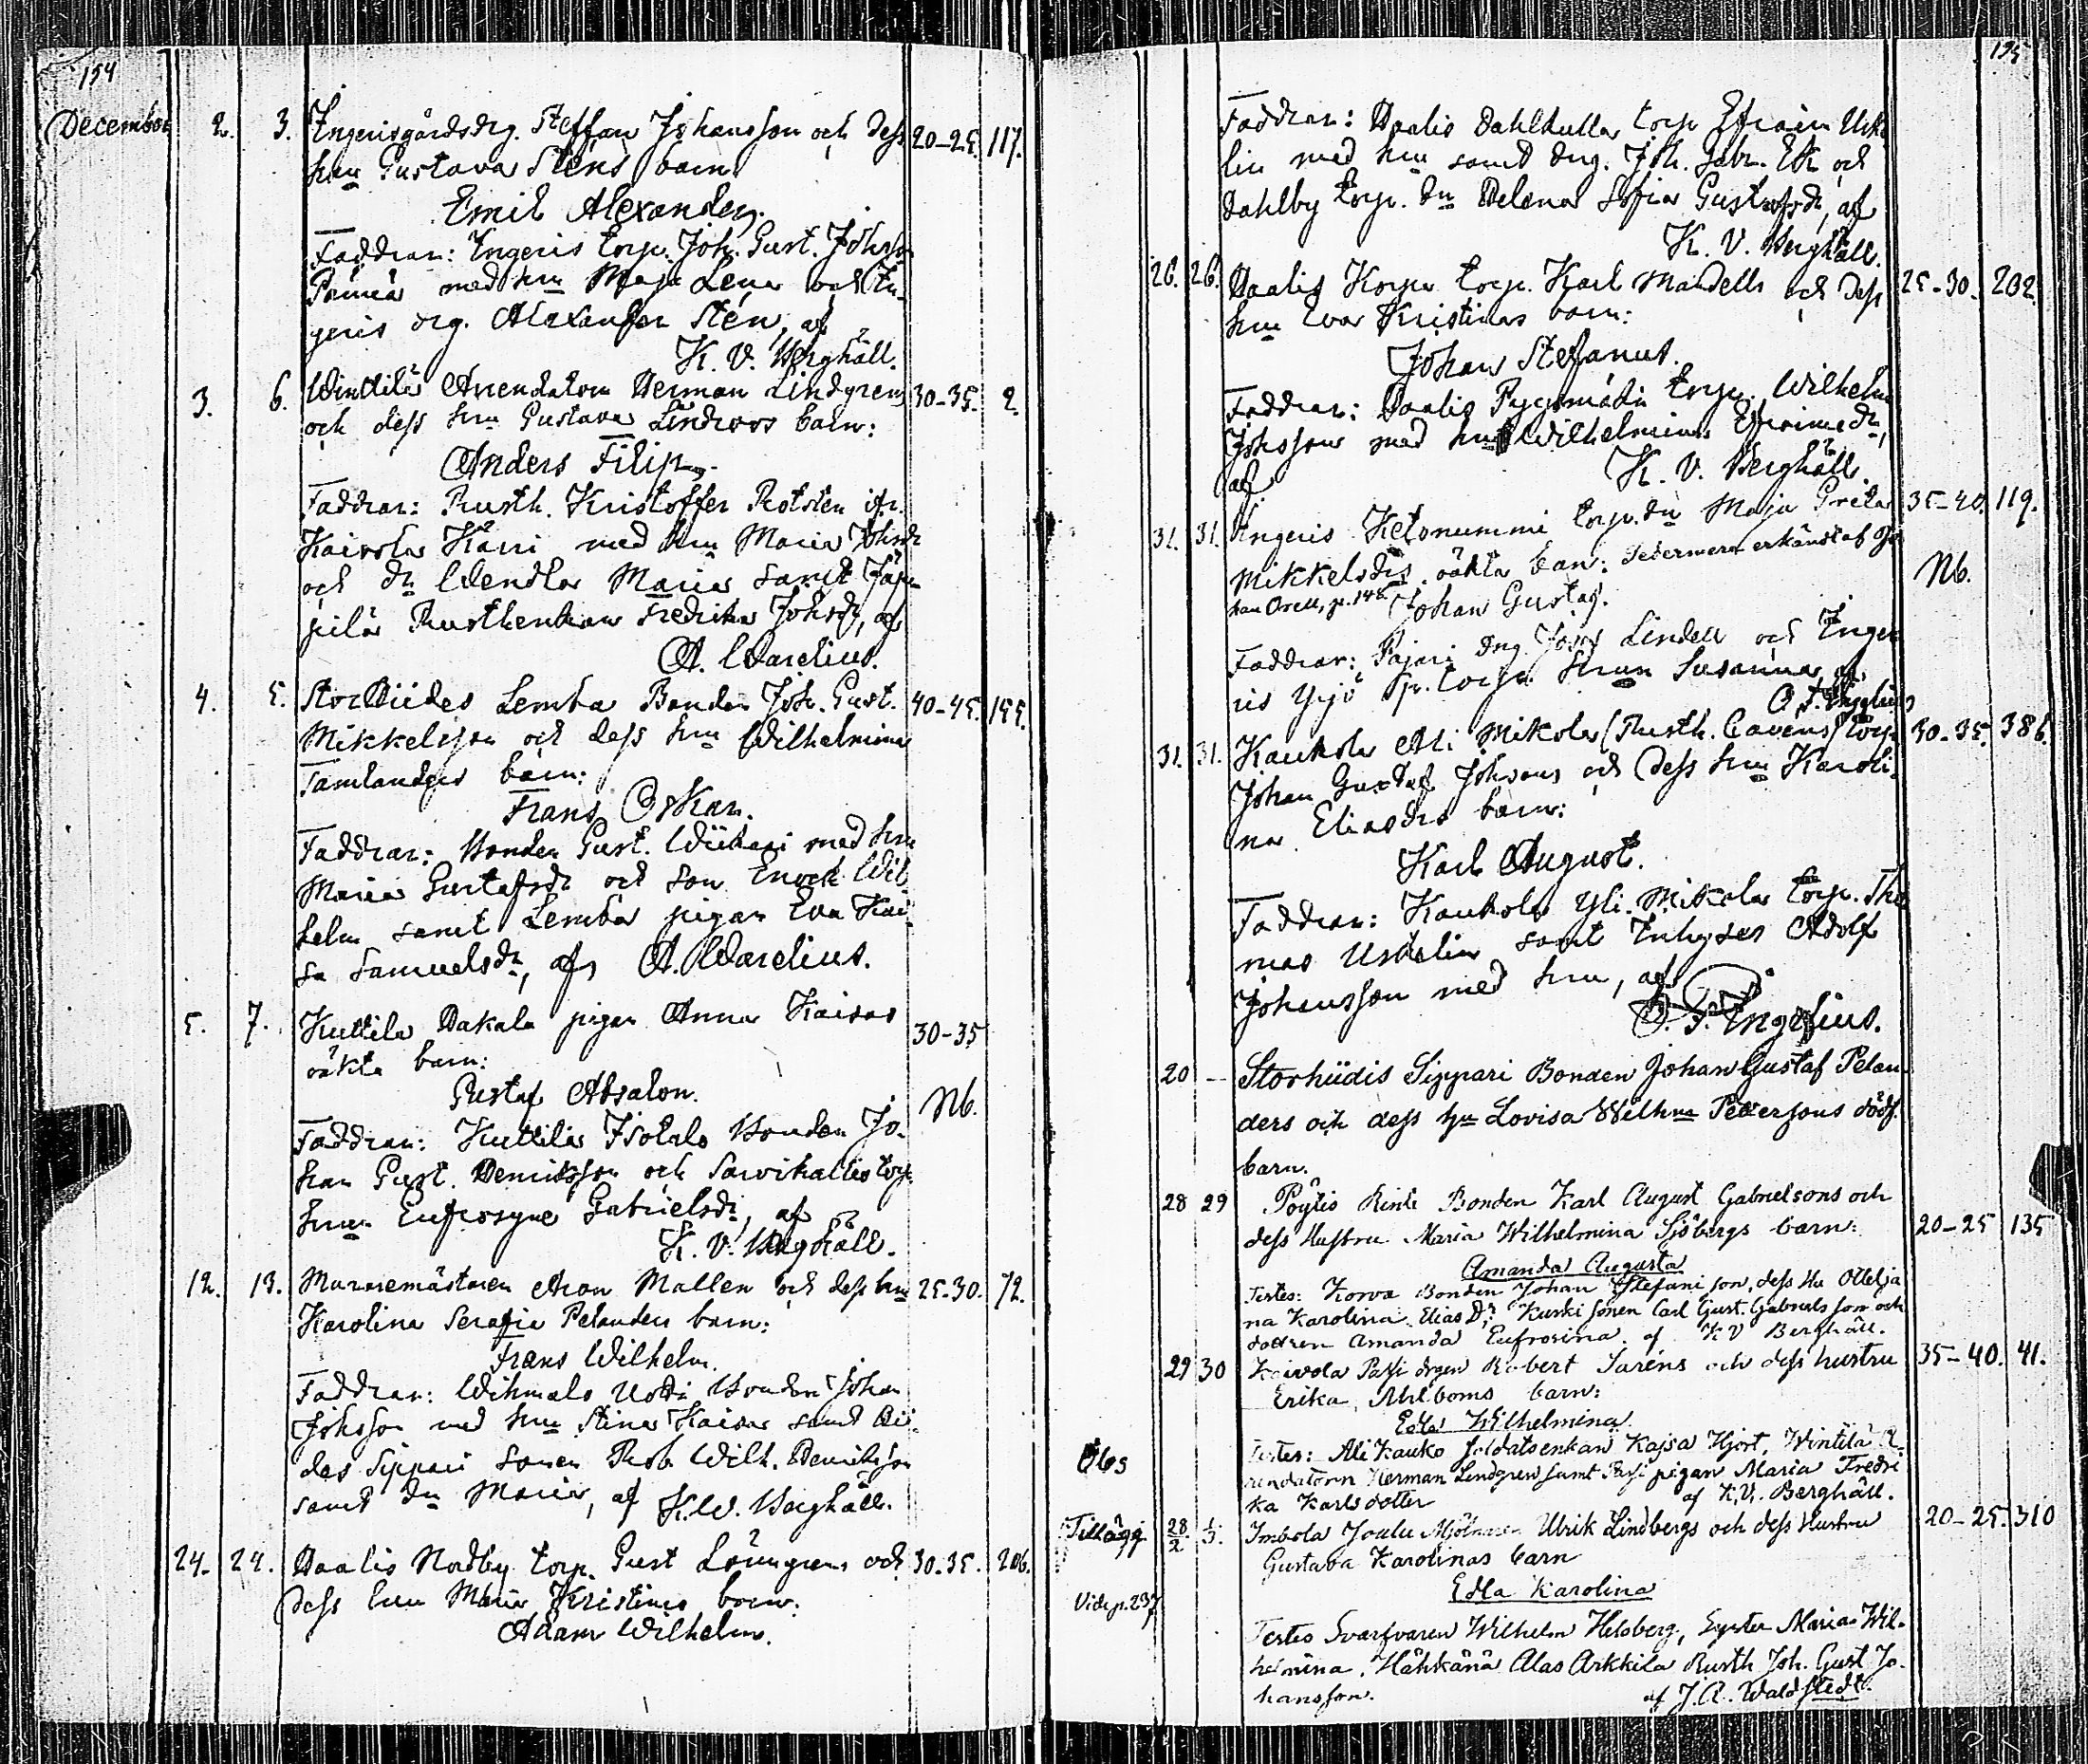 154
December 2. 3. Ingerisgårdsdrg. Steffan Johansson och dess 20-25. 117.
hru Gustava Stens barn
Emil Alexander.
Faddrar: Ingeris torp. Joh. Gust. Johsson
med hru Maja Lena och In-
geris drg. Alexander Sten, af
K. V. Berghäll.
3. 6. Winttilä Arrendatorn Herman Lindgrens 30-35. 2.
och dess hru Gustava Lindroos barn:
Anders Filip.
Faddrar: Rusth. Kristoffer Rotsten ifr.
Kaivola Kärri med hru Maria Johsdr
och dr Wendla Maria samt Jäp-
pilä Rusthenkan Fredrika Johsdr, af
A. Warelius.
4. 5. StorHiides Lemba Bonden Joh. Gust. 40-45. 155.
Mikkelsson och dess hru Wilhelmina
Tamlanders barn:
Frans Oskar.
Faddrar: Bonden Gust. Wiikari med hru
Maria Gustafsdr och son Enock Wil-
helm samt Lemba pigan Eva Kai-
sa Samuelsdr, af A. Warelius.
5. 7. Kuttila Hakala pigan Anna Kaisas 30-35
oäkta barn:
Gustaf Absalon. Nb.
Faddrar: Kuttila Isotalo Bonden Jo-
han Gust. Henriksson och Sarvikallio torp.
hrun Eufrosyne Gabrielsdr, af
K. V. Berghäll.
12. 13. Murmästaren Aron Mallen och dess hru 25-30. 72.
Karolina Serafia Pelanders barn:
Frans Wilhelm.
Faddrar: Wihmalo Uoti Bonden Johan
Johsson med hru Stina Kaisa samt Hii-
des Sippari sonen Rob. Wilh. Henriksson
samt dr Maria, af K. V. Berghäll.
24. 24. Haalis Nodby torp. Gust Löfingrens och 30-35. 206.
dess hru Maria Kristinas barn:
Adam Wilhelm.
195
Faddrar: Haalis Dahlkulla torp. Efraim Uske-
lin med hru samt drg. Joh. Gabr. Ek och
Dahlby torp. dr Helena Sofia Gustafsdr, af
K. V. Berghäll.
26. 26. Haalis Korpi torp. Karl Mandells och dess 25-30. 202.
hru Eva Kristinas barn:
Johan Stefanus.
Faddrar: Haalis torp. Wilhelm
Johsson med hru Wilhelmina Efraimsdr,
af K. V. Berghäll.
31. 31. Ingeris Ketonummi torp. dr Maja Greta 35-40. 119.
Mikkelsdrs oäkta barn: Sedermera erkändt af Jo-
han Orell, p. 148. Johan Gustaf. Nb.
Faddrar: Pajari drg. Josef Lindell och Inge-
ris Yrjö Sp. torp. hrun Susanna, af
O. F. Ingelius
31. 31. Kaukola Ali Mikola (Rusth. Cavens) torp. 30-35. 386.
Johan Gustaf Johssons och dess hru Karoli-
na Eliasdrs barn:
Karl August.
Faddrar: Kaukola Yli-Mikola torp. Tho-
mas Uskelin samt Inhyses Adolf
Johansson med hru, af
O. F. Ingelius.
20 - Storhiidis Sippari Bonden Johan Gustaf Pelan-
ders och dess hu Lovisa Wilhna Pettersons dödf.
barn.
28 29 Pöytis Rinti Bonden Karl August Gabrielsons och
dess Hustru Maria Wilhelmina Sjöbergs barn: 20-25 135
Amanda Augusta
Testes: Korva Bonden Johan Stefani son, dess Hu Ottelja-
na Karolina Elias Dr: Kurki sonen Carl Gust. Gabriels son och
dottren Amanda Eufrosina. af K V Berghäll.
29 30 Kaivola Passi drgen Robert Sarens och dess hustru 35-40. 41.
Erika Ahlboms barn:
Edla Wilhelmina
Obs Testes: Ali Kauko soldatsenkan Kajsa Hjort, Wintilä A-
rendatorn Herman Lindgren samt Passi pigan Maria Fredri-
ka Karlsdotter af K. V. Berghäll.
Tillägg. 28/2 1/3. Imbola Joulu Mjölnaren Ulrik Lindbergs och dess Hustru 20-25. 310
Gustava Karolinas barn
Edla Karolina
Vide p. 237
Testes Svarfvaren Wilhelm Helsberg, Syster Maria Wil-
helmina, Hähkänä Alas Arkkila Rusth Joh. Gust Jo-
hansson. af J. A. Waldstedt.